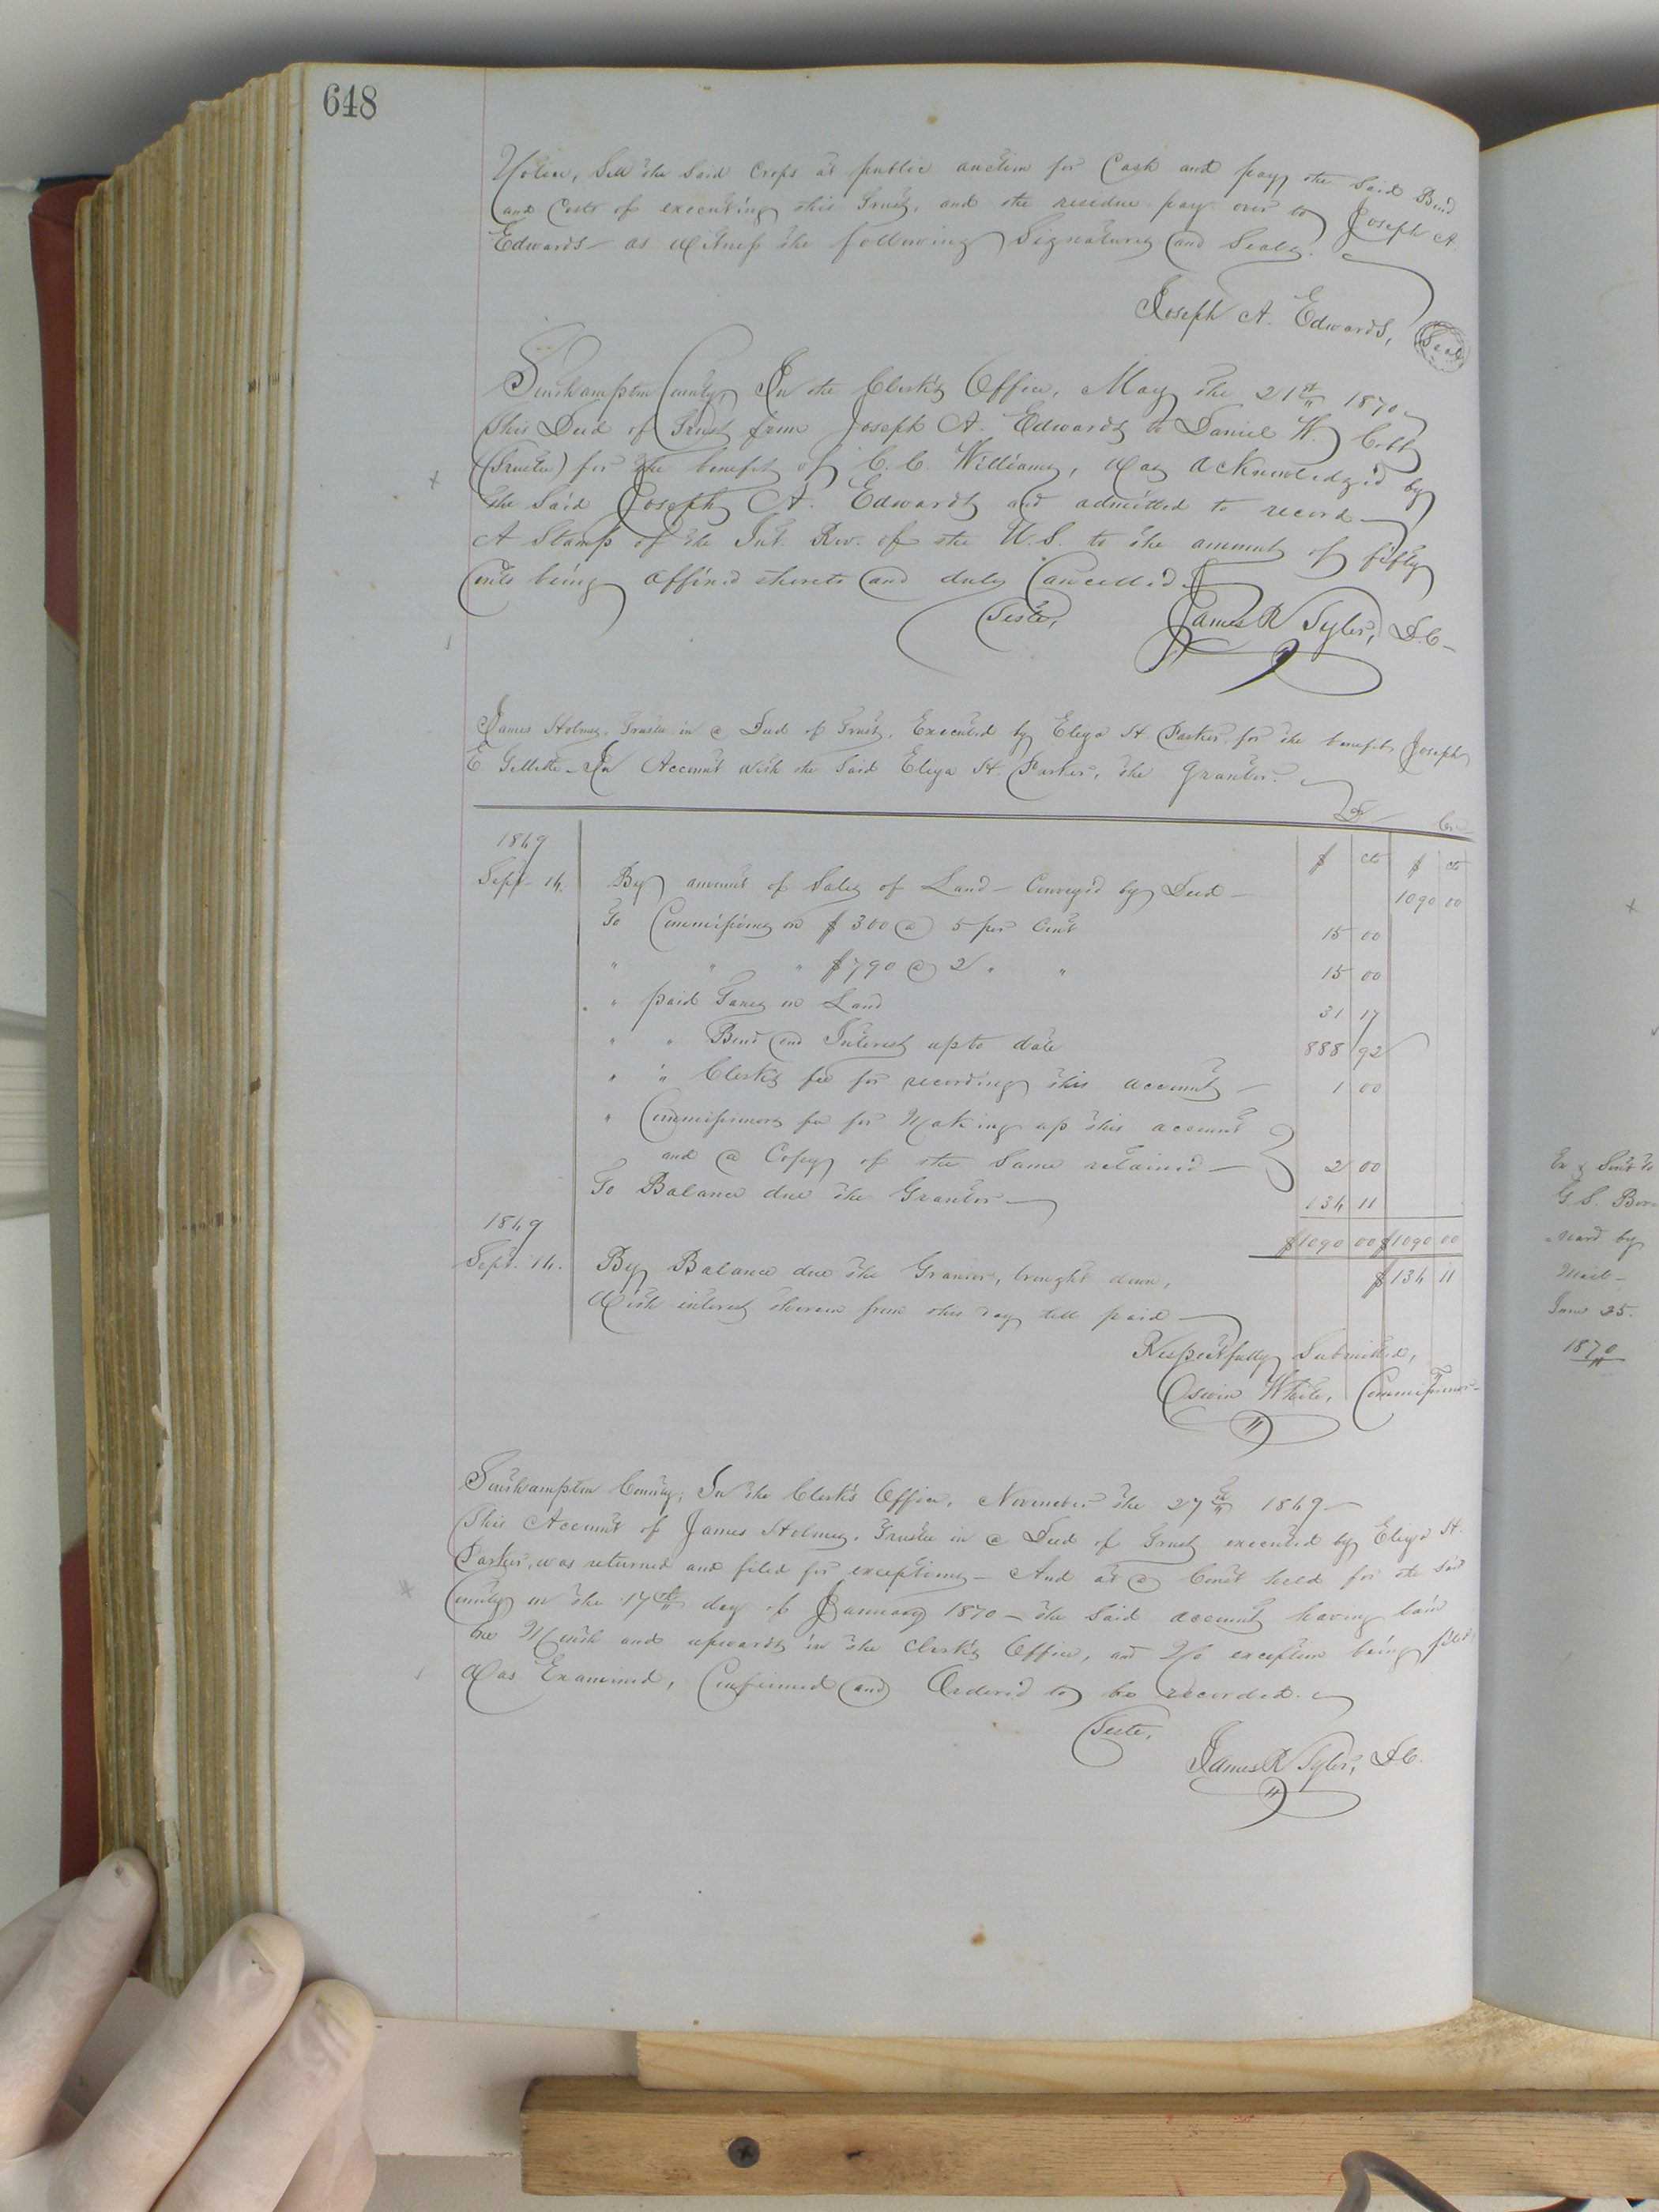 648
Notice, Sell the said Crops at public auction for Cash and pay the said Bond
and Costs of executing this Trust, and the residue pay over to Joseph A.
Edwards — as Witness the following Signatures and Seals.
Joseph A. Edwards, Seal
Southampton County, In the Clerk's Office, May the 21st 1870
This Deed of Trust from Joseph A. Edwards to Daniel W. Cobb
(Trustee) for the benefit of C. C. Williams, was acknowledged by
the said Joseph A. Edwards and admitted to record —
A Stamp of the Int. Rev. of the U.S. to the amount of fifty
Cents being affixed thereto and duly Cancelled.
Teste, James R Tyler, D.C —
James Holmes, Trustee in a Deed of Trust, Executed by Eliza H. Parker, for the benefit Joseph
E Gillette — In Account with the said Eliza H. Parker, the Grantor.
Dr Cr
1869 $ cts $ cts
Sept. 14. By amount of Sales of Land — Conveyed by Deed — 1090 00
To Commissions on $300 @ 5 per Cent 15 00
" " " $790 @ 2 " " 15 00
" paid Taxes on Land 31 17
" " Bond and Interest up to date 888 92
" " Clerk's fee for recording this account — 1 00
" Commissioners fee for Making up this account
and a Copy of the same retained — 2 00
To Balance due the Grantor — 136 11
1869 $1090 00 $1090 00
Sept. 14. By Balance due the Grantor, brought down, $136 11
With interest thereon from this day till paid —
Respectfully Submitted,
Oswin White, Commissioner
Southampton County, In the Clerk's Office, November the 27th 1869 —
This Account of James Holmes, Trustee in a Deed of Trust executed by Eliza H.
Parker, was returned and filed for exceptions — And at a Court held for the said
County on the 17th day of January 1870 — the said account having lain
one Month and upwards in the Clerk's Office, and No exception being filed,
Was Examined, Confirmed and Ordered to be recorded.
Teste,
James R Tyler, D.C.
Ex & Sent to
G. S.
by
Mail —
June 25.
1870